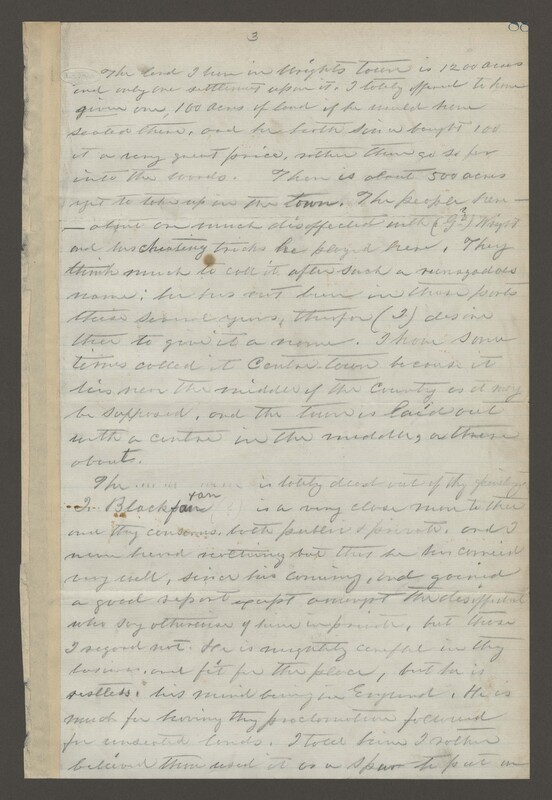 3
88
The land I have in Wrights town is 1200 acres
and only one settlement upon it. I lately offered to have
given one, 100 acres of land if he would have
seated there, and he hath since bought 100
at a very great price, rather than go so far
into the woods. There is about 500 acres
yet to take up in the town. The people here-
-about are much disaffected with (Jd) Wright
and his cheating tricks he played here. They
think much to call it after such a runagadoes
name; he has not been in these parts
these several years, therefor (I) desire
thee to give it a name. I have some
times called it Center town because it
lies near the middle of the County as it may
be supposed, and the town is laid out
with a centre in the middle, a there
abouts.
The is lately dead out of thy
J. Blackfan is a very close man to thee
and thy concerns, both public & private, and I
never heard nothing but that he has carried
very well, since his coming, and gained
a good report except amongst the disaffected
who say otherwise of him in private, but those
I regard not. He is mightily careful in thy
business, and fit for the place, but he is
restless, his mind being in England. He is
much for having thy proclamation followed
for unseated lands. I told him I rather
believed thou used it as a spur to put on